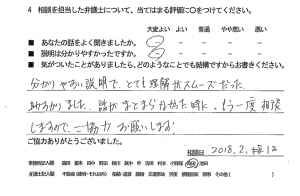 4 相談を担当した弁護士について、当てはまる評価に○をつけてください。
大変よい よい 普通 やや悪い 悪い
■ あなたの話をよく聞きましたか。
■ 説明は分かりやすかったですか。
■ 気がついたことがありましたら、どのようなことでも結構ですからお書きください。
分かりやすい説明で、とても理解がスムーズだった。
助かりました。話がまとまらなかった時に、もう一度相談
しますので、ご協力お願いします
ご協力ありがとうございました。
相談日 2018.2.